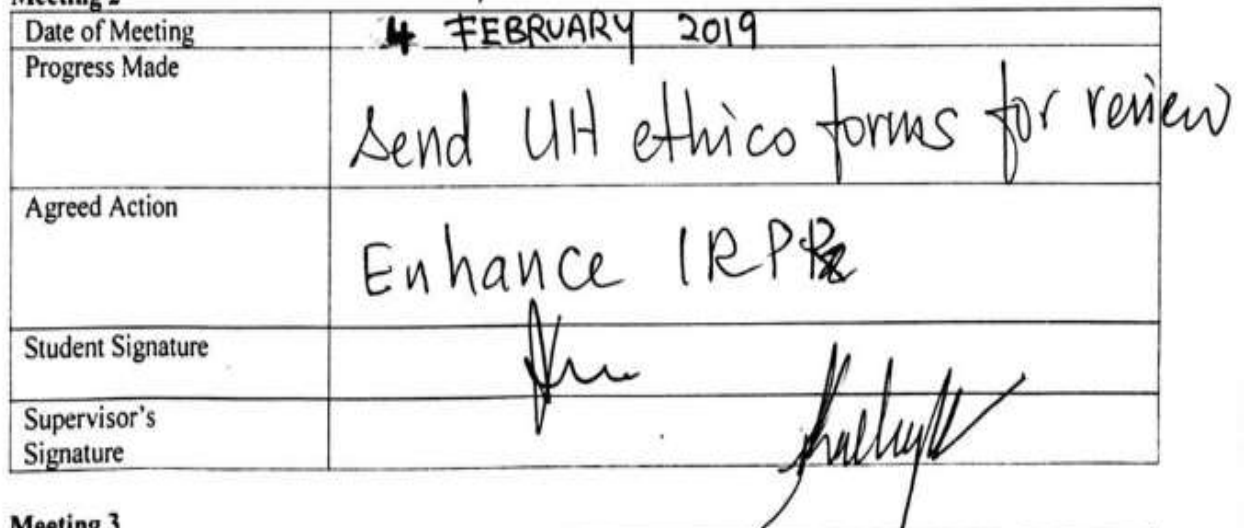 Meeting 2
Date of Meeting 4 FEBRUARY 2019
Progress Made
Send UH ethico forms for review
Agreed Action
Enhance IRP
Student Signature
Supervisor's
Signature
Meeting 3